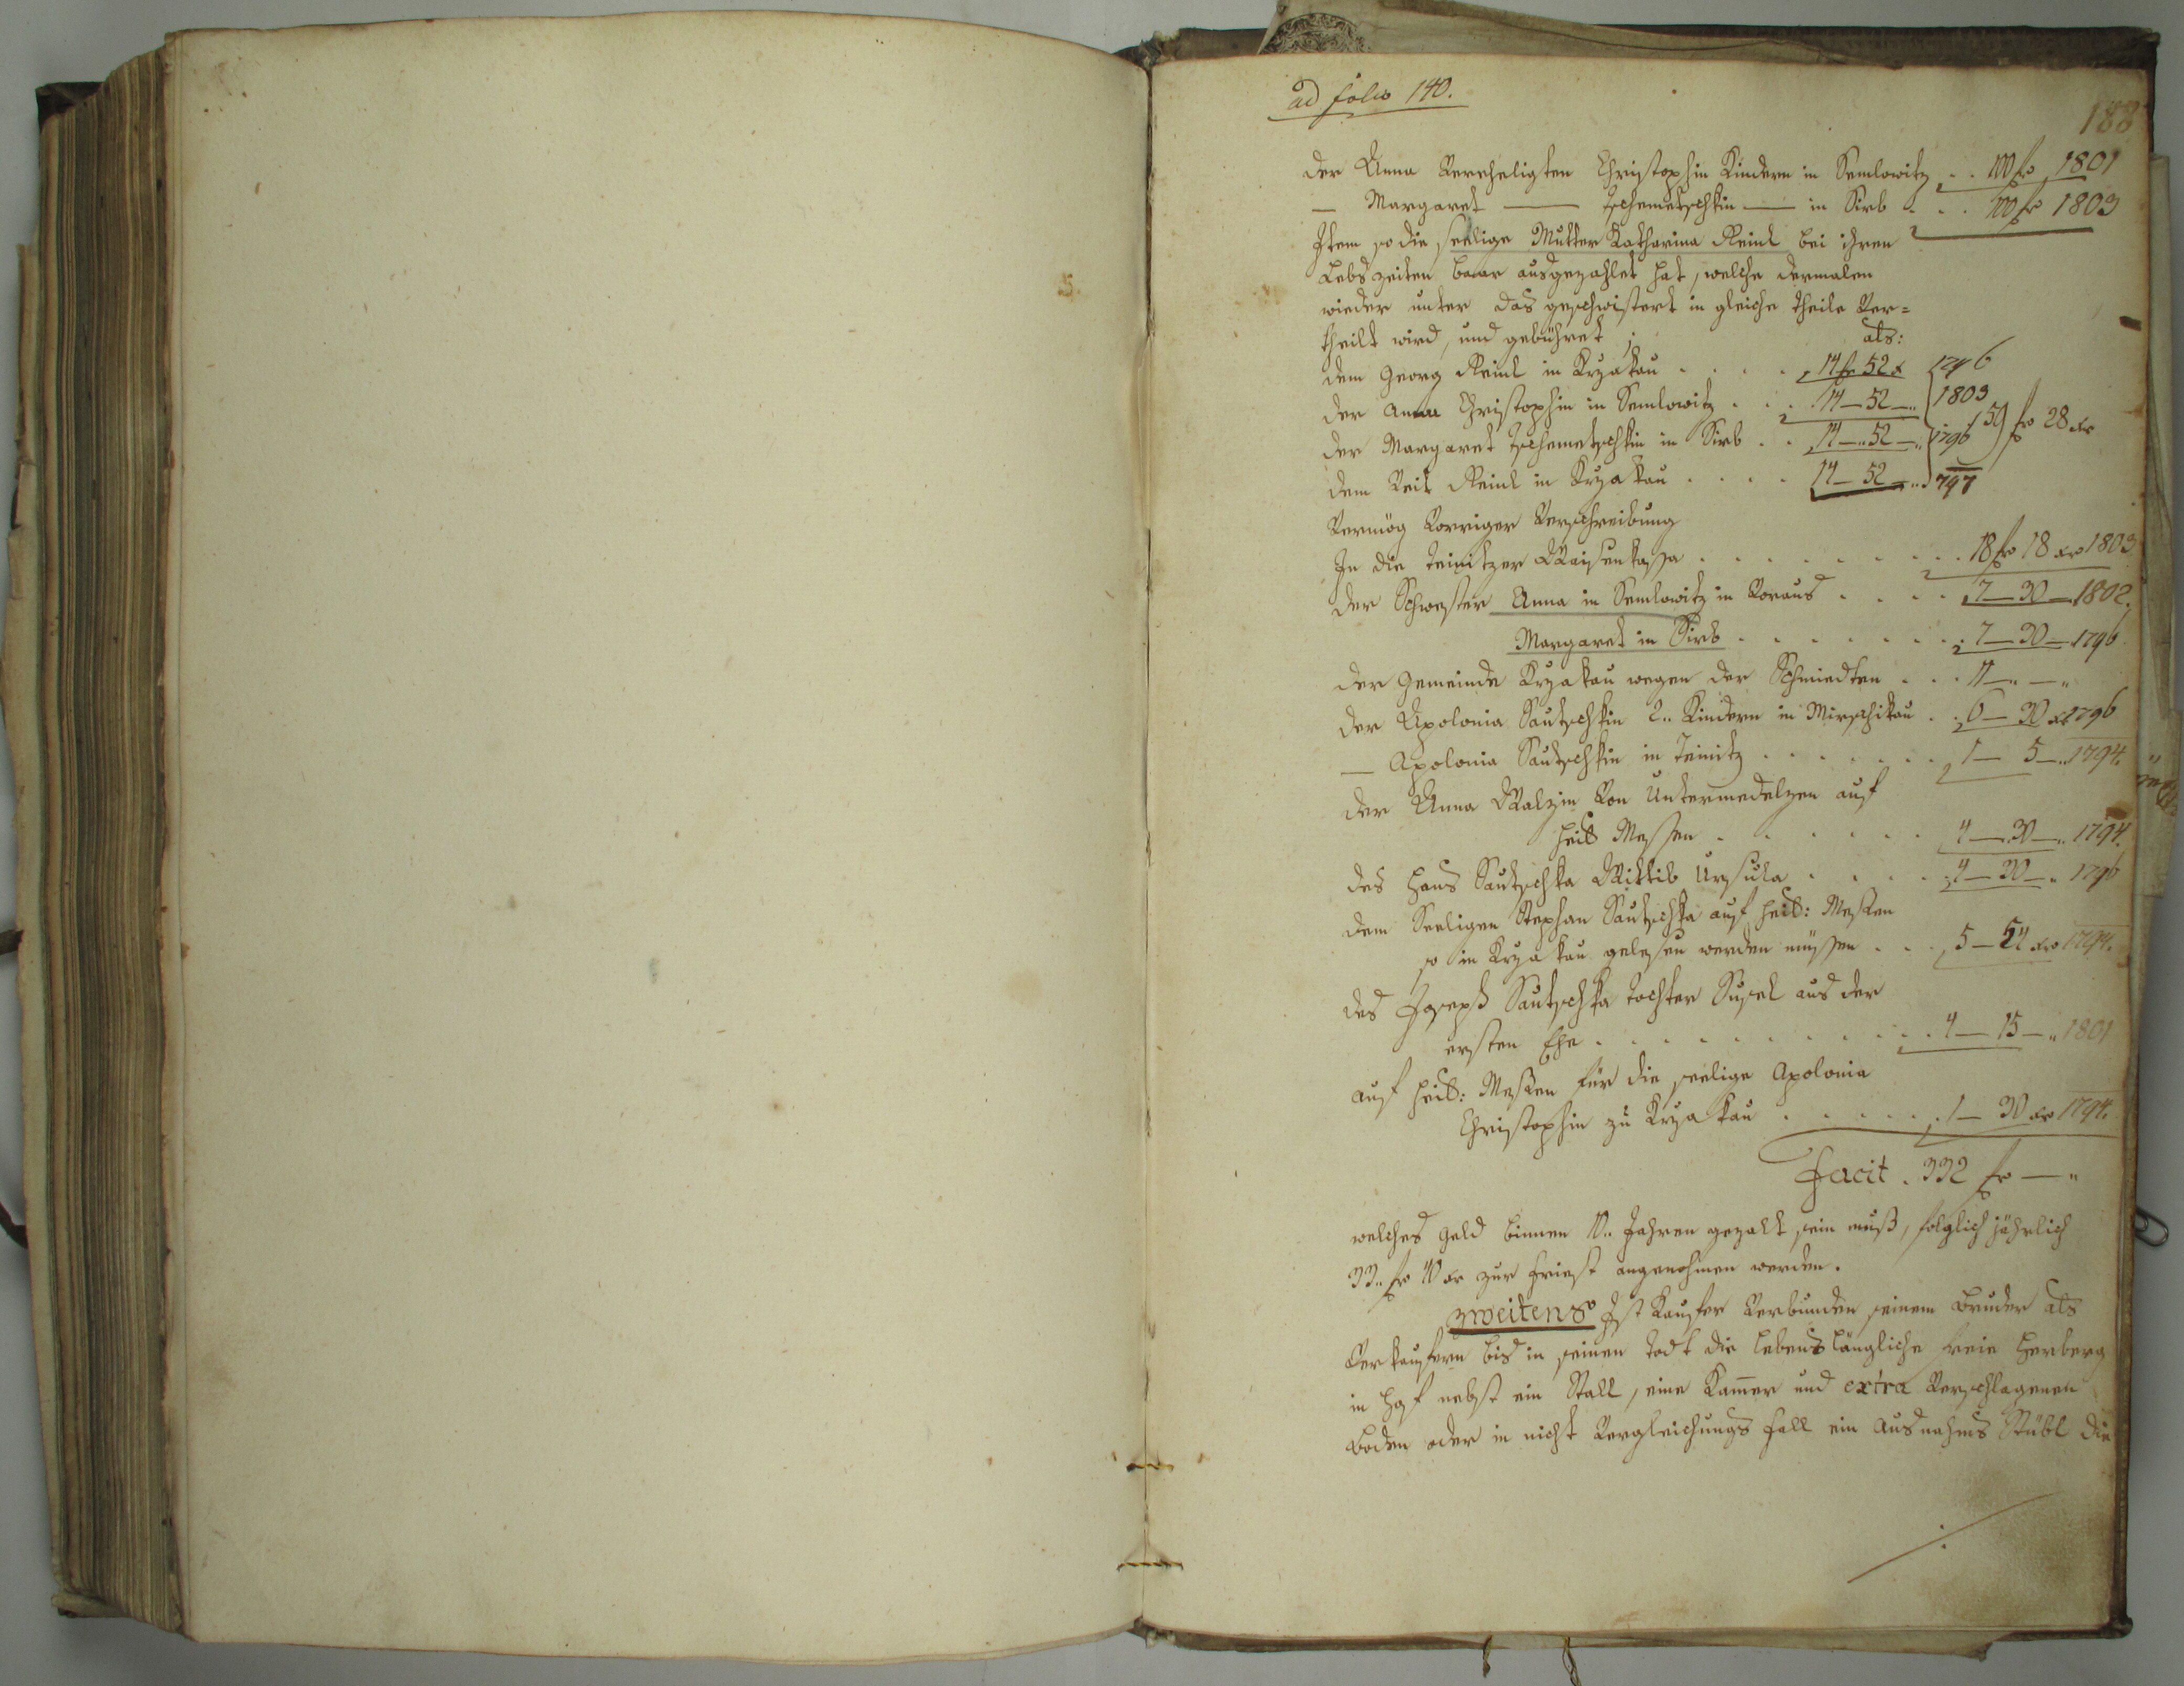 ad folio 140.
188
der Anna Verehligten Christophin Kindern in Semlowitz . . 100 fr 1801
— Margaret — Tschemetschkin — in Sirb . . . 100 fr 1803
Item so die seelige Mutter Katharina Reinl bei ihren
Lebszeiten baar ausgezahlet hat, welche dermalen
wieder unter das geschwistert in gleiche theile Ver=
theilt wird, und gebühret als:
dem Georg Reinl in Kryakau . . . . 14 fr 52 x 1796
der Anna Christophin in Semlowitz . . . 14 — 52 — „ 1803
der Margaret Tschemetschkin in Sirb . . 14 — „ 52 — „ 1796 59 fr 28 xr
dem Veit Reinl in Kryakau . . . . 14 — 52 — „ 797
Vermög Voriger Verschreibung
In die Teinitzer Waisenkassa . . . . . . . . 18 fr 18 xr 1803
der Schwester Anna in Semlowitz in Voraus . . . . 7 — 30 — 1802.
Margaret in Sirb . . . . . . . . 7 — 30 — 1796
der Gemeinde Kryakau wegen der Schmiedten . . . 11 — „ — „
der Apolonia Sautschkin 2 „ Kindern in Mirschikau . . 6 — 30 xr 1796
— Apolonia Sautschkin in Teinitz . . . . . . . 1 — 5 — „ 1794.
der Anna Walzin Von Untermedelzen auf
heil Messen . . . . . . 4 — 30 — „ 1794.
des Hans Sautschka Wittib Ursula . . . . . 4 — 30 — „ 1796
dem Seeligen Stephan Sautschka auf heil: Messen
so in Kryakau gelesen werden müssen . . . 5 — 54 xr 1794.
des Joseph Sautschka tochter Susel aus der
ersten Ehe . . . . . . . . . . . 4 — 15 — „ 1801
auf heil: Messen für die seelige Apolonia
Christophin zu Kryakau . . . . . . 1 — 30 xr 1794.
Facit . 332 fr — „
welches Geld binnen 10 „ Jahren gezahlt sein muß, folglich jährlich
33 „ fr 10 xr zur Friest angenohmen werden.
zweitens Ist Kaufer Verbunden seinem Bruder als
Verkaufern bis in seinen Todt die lebenslängliche freie Herberg
in Hof nebst ein Stall, eine Kamer und extra Verschlagenen
Boden oder in nicht Vergleichungs Fall ein Ausnahms Stübl die